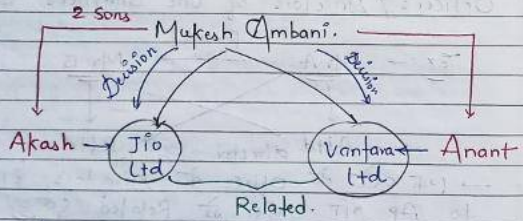 2 Sons
Mukesh Ambani.
Decision
Decision
Akash
Jio
Ltd
Vantara
Ltd
Anant
Related.